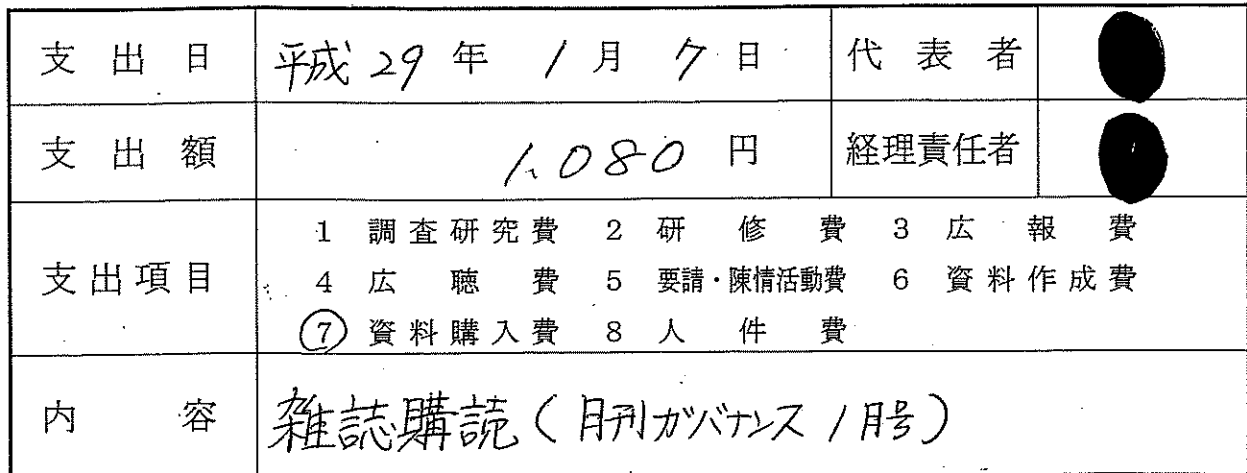 支出日 平成29年1月7日 代表者
支出額 1,080円 経理責任者
1 調査研究費 2 研修費 3 広報費
支出項目 4 広聴費 5 要請・陳情活動費 6 資料作成費
⑦ 資料購入費 8 人件費
内容 雑誌購読(月刊ガバナンス1月号)